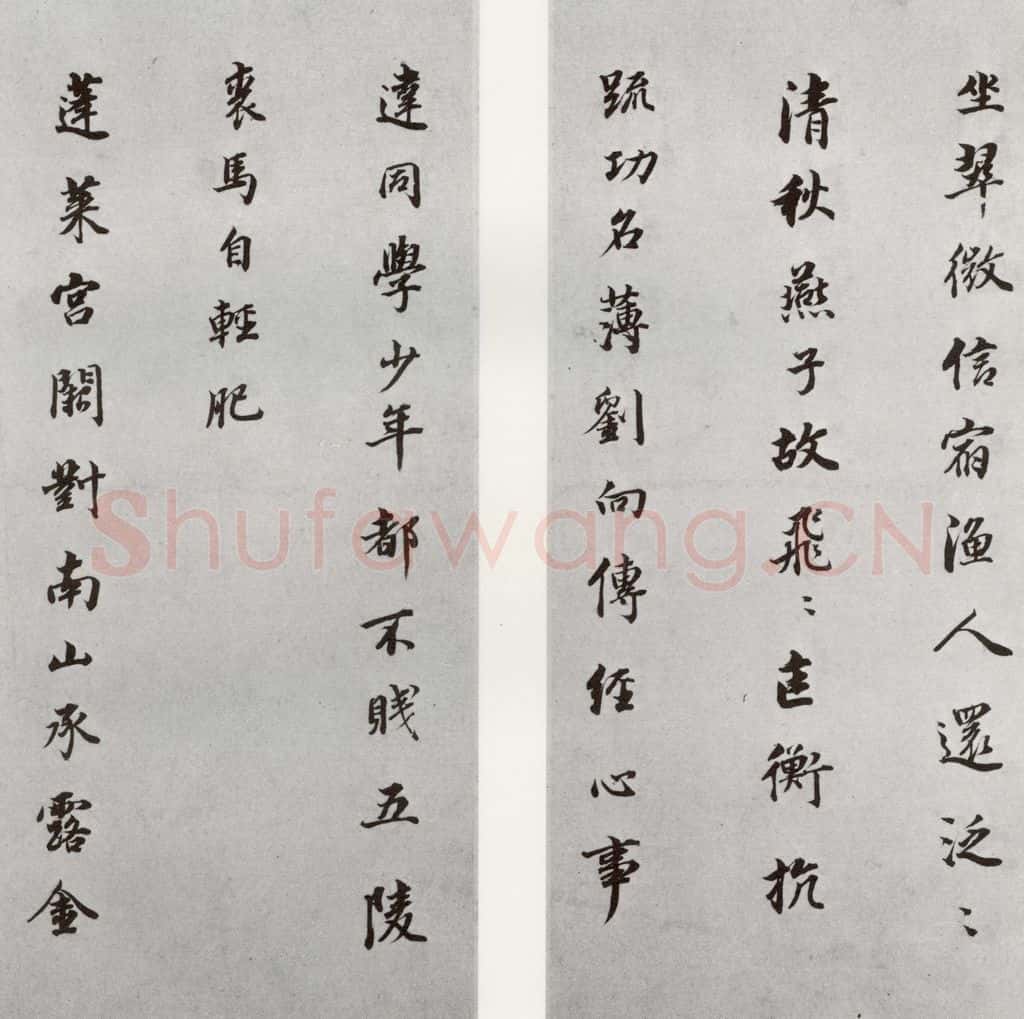 坐翠微信宿漁人還泛〻
清秋燕子故飛〻匡衡抗
疏功名薄劉向傳經心事
違同學少年都不賤五陵
裘馬自輕肥
蓬萊宮闕對南山承露金
Shufawang.CN